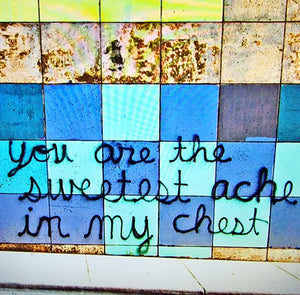 you are the
sweetest ache
in my chest